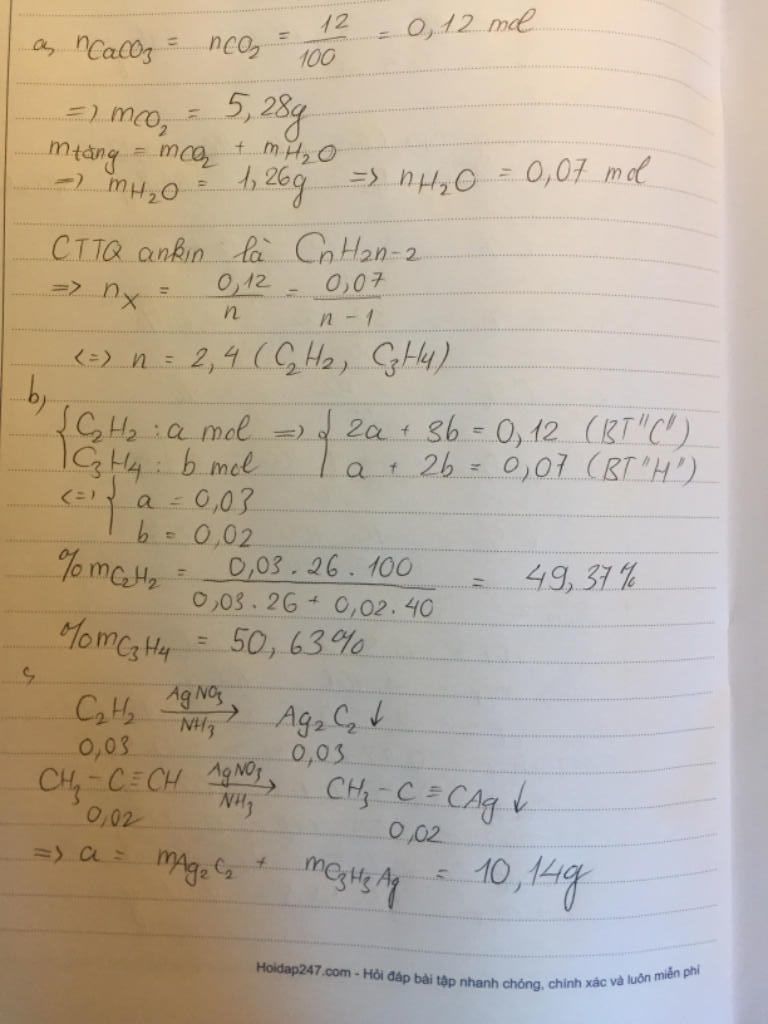 a, nCaCO3 = nCO2 = 12/100 = 0,12 mol
=> mCO2 = 5,28g
mtăng = mCO2 + mH2O
=> mH2O = 1,26g => nH2O = 0,07 mol
CTTQ ankin là CnH2n-2
=> nX = 0,12/n = 0,07/n-1
<=> n = 2,4 (C2H2, C3H4)
b,
{ C2H2 : a mol => { 2a + 3b = 0,12 (BT"C")
C3H4 : b mol a + 2b = 0,07 (BT"H")
<=> { a = 0,03
b = 0,02
%mC2H2 = 0,03.26.100/0,03.26+0,02.40 = 49,37%
%mC3H4 = 50,63%
c,
C2H2 AgNO3/NH3 → Ag2C2↓
0,03 0,03
CH3-C≡CH AgNO3/NH3 → CH3-C≡CAg↓
0,02 0,02
=> a = mAg2C2 + mC3H3Ag = 10,14g
Hoidap247.com - Hỏi đáp bài tập nhanh chóng, chính xác và luôn miễn phí